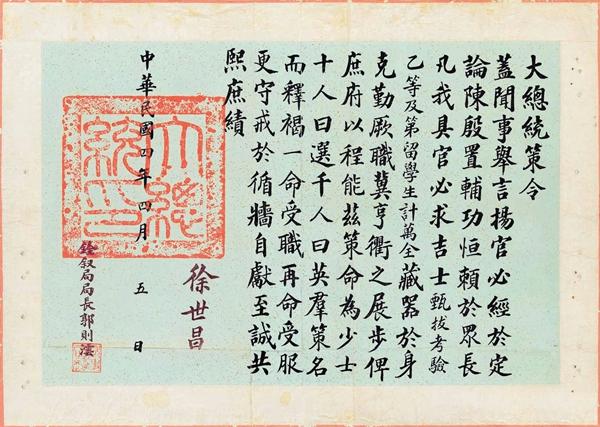 大總統策令
蓋聞事舉言揚官必經於定
論陳殷置輔功恒賴於眾長
凡我具官必求吉士甄拔考驗
乙等及第留學生計萬全藏器於身
克勤厥職冀亨衢之展步俾
庶府以程能茲策命為少士
十人曰選千人曰英羣策名
而釋褐一命受職再命受服
更守戒於循牆自獻至誠共
熙庶績
中華民國四年四月五日
大總統印
徐世昌
銓叙局局長郭則澐